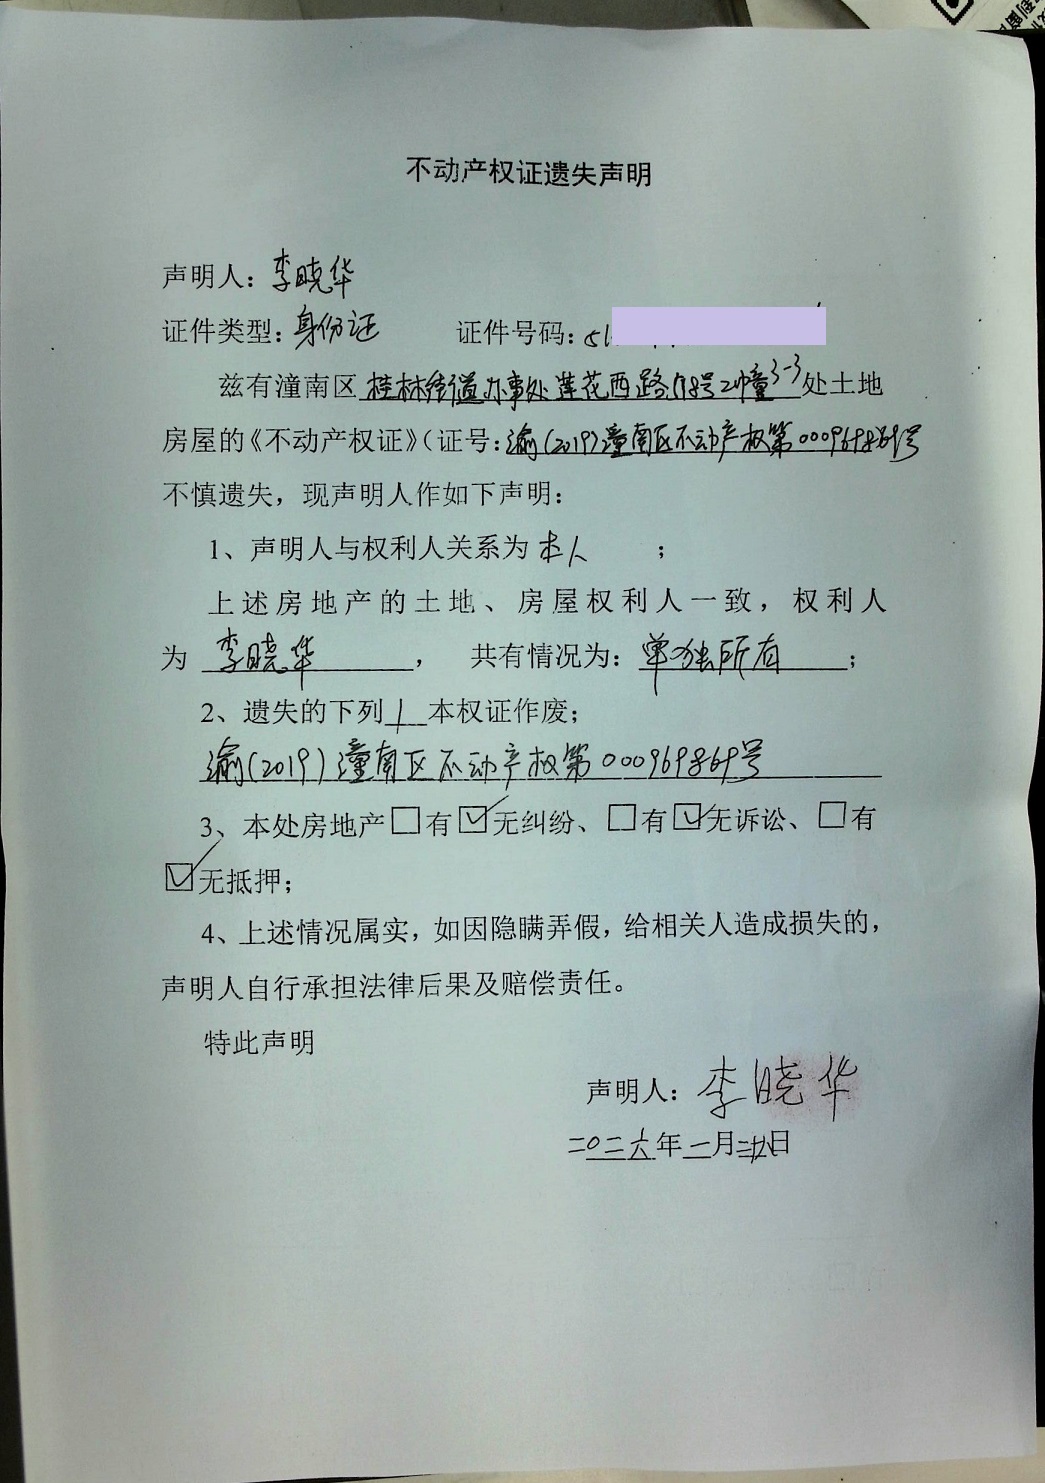 不动产权证遗失声明
声明人：李晓华
证件类型：身份证 证件号码：51
兹有潼南区桂林街道办事处莲花西路178号2幢3-3处土地
房屋的《不动产权证》（证号：渝（2019）潼南区不动产权第000969869号
不慎遗失，现声明人作如下声明：
1、声明人与权利人关系为 本人 ；
上述房地产的土地、房屋权利人一致，权利人
为 李晓华 ， 共有情况为：单独所有 ；
2、遗失的下列 1 本权证作废；
渝（2019）潼南区不动产权第000969869号
3、本处房地产□有☑无纠纷、□有☑无诉讼、□有
☑无抵押；
4、上述情况属实，如因隐瞒弄假，给相关人造成损失的，
声明人自行承担法律后果及赔偿责任。
特此声明
声明人：李晓华
二〇二六年一月二十八日